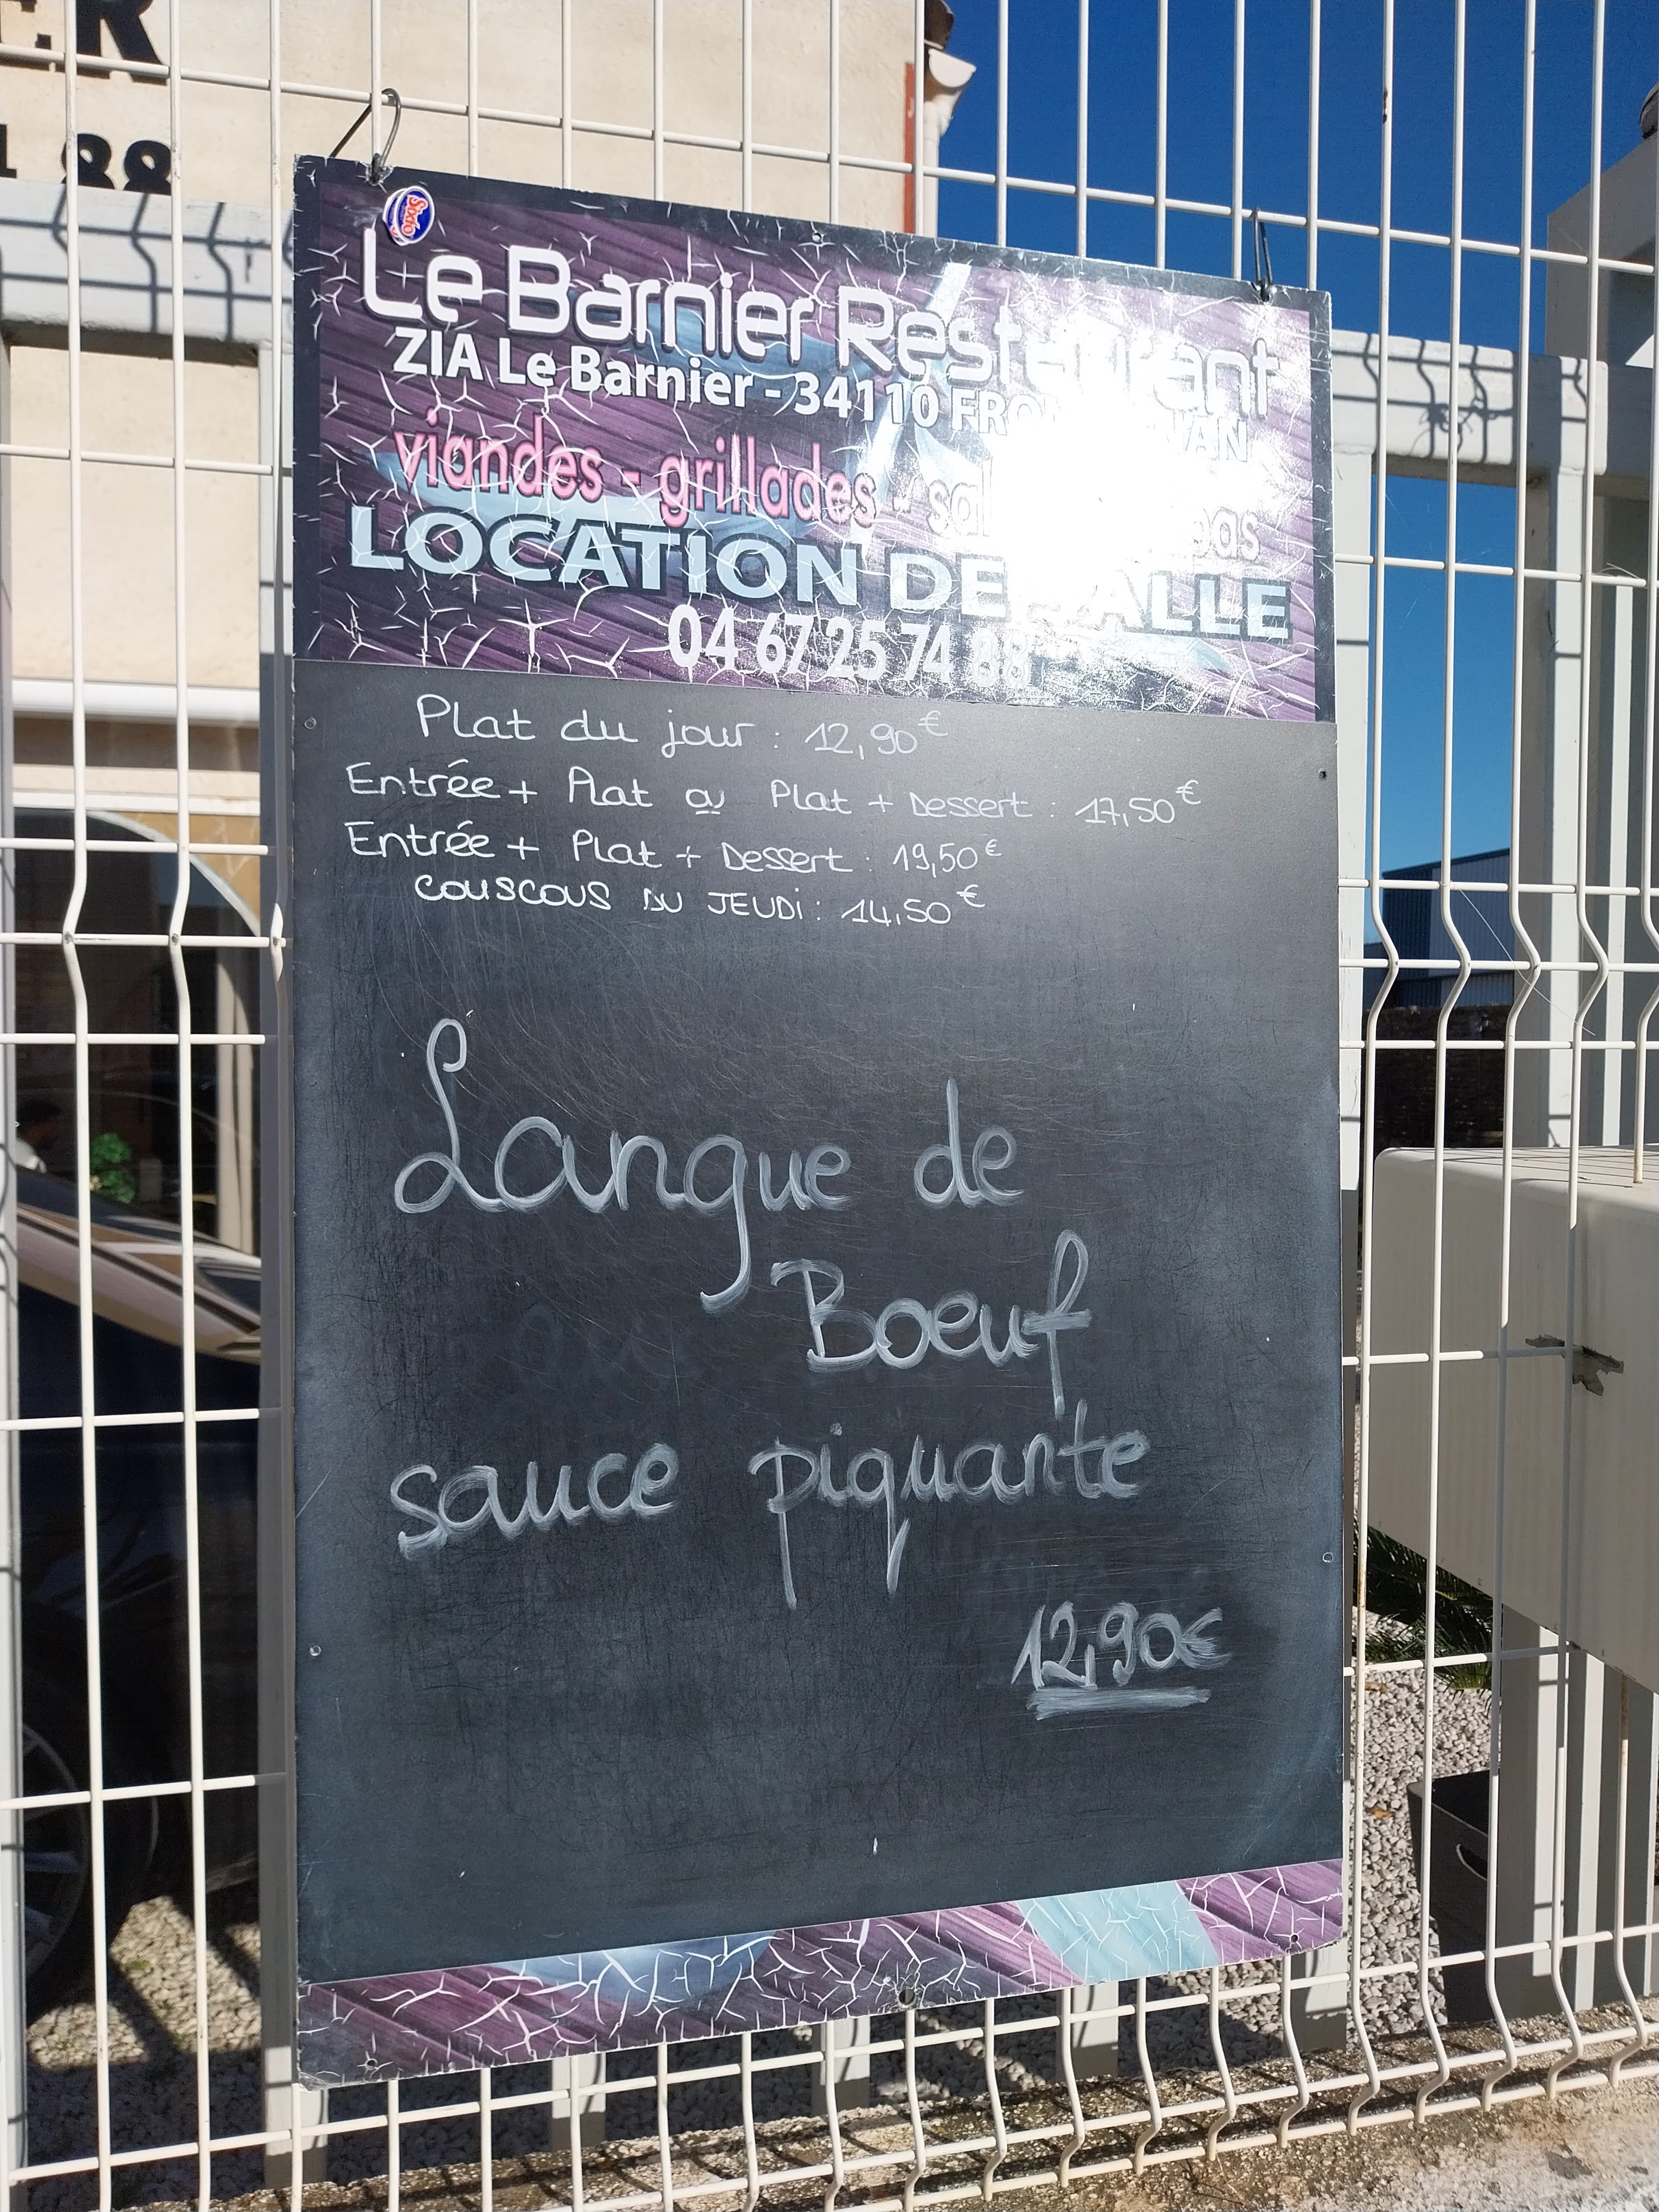 ER
88
Sixto
Le Barnier Restaurant
ZIA Le Barnier - 34110
viandes - grillades -
LOCATION DE SALLE
04 67 25 74 88
Plat du jour : 12,90€
Entrée + Plat ou Plat + Dessert : 17,50€
Entrée + Plat + Dessert : 19,50€
COUSCOUS DU JEUDi : 14,50€
Langue de
Boeuf
sauce piquante
12,90€